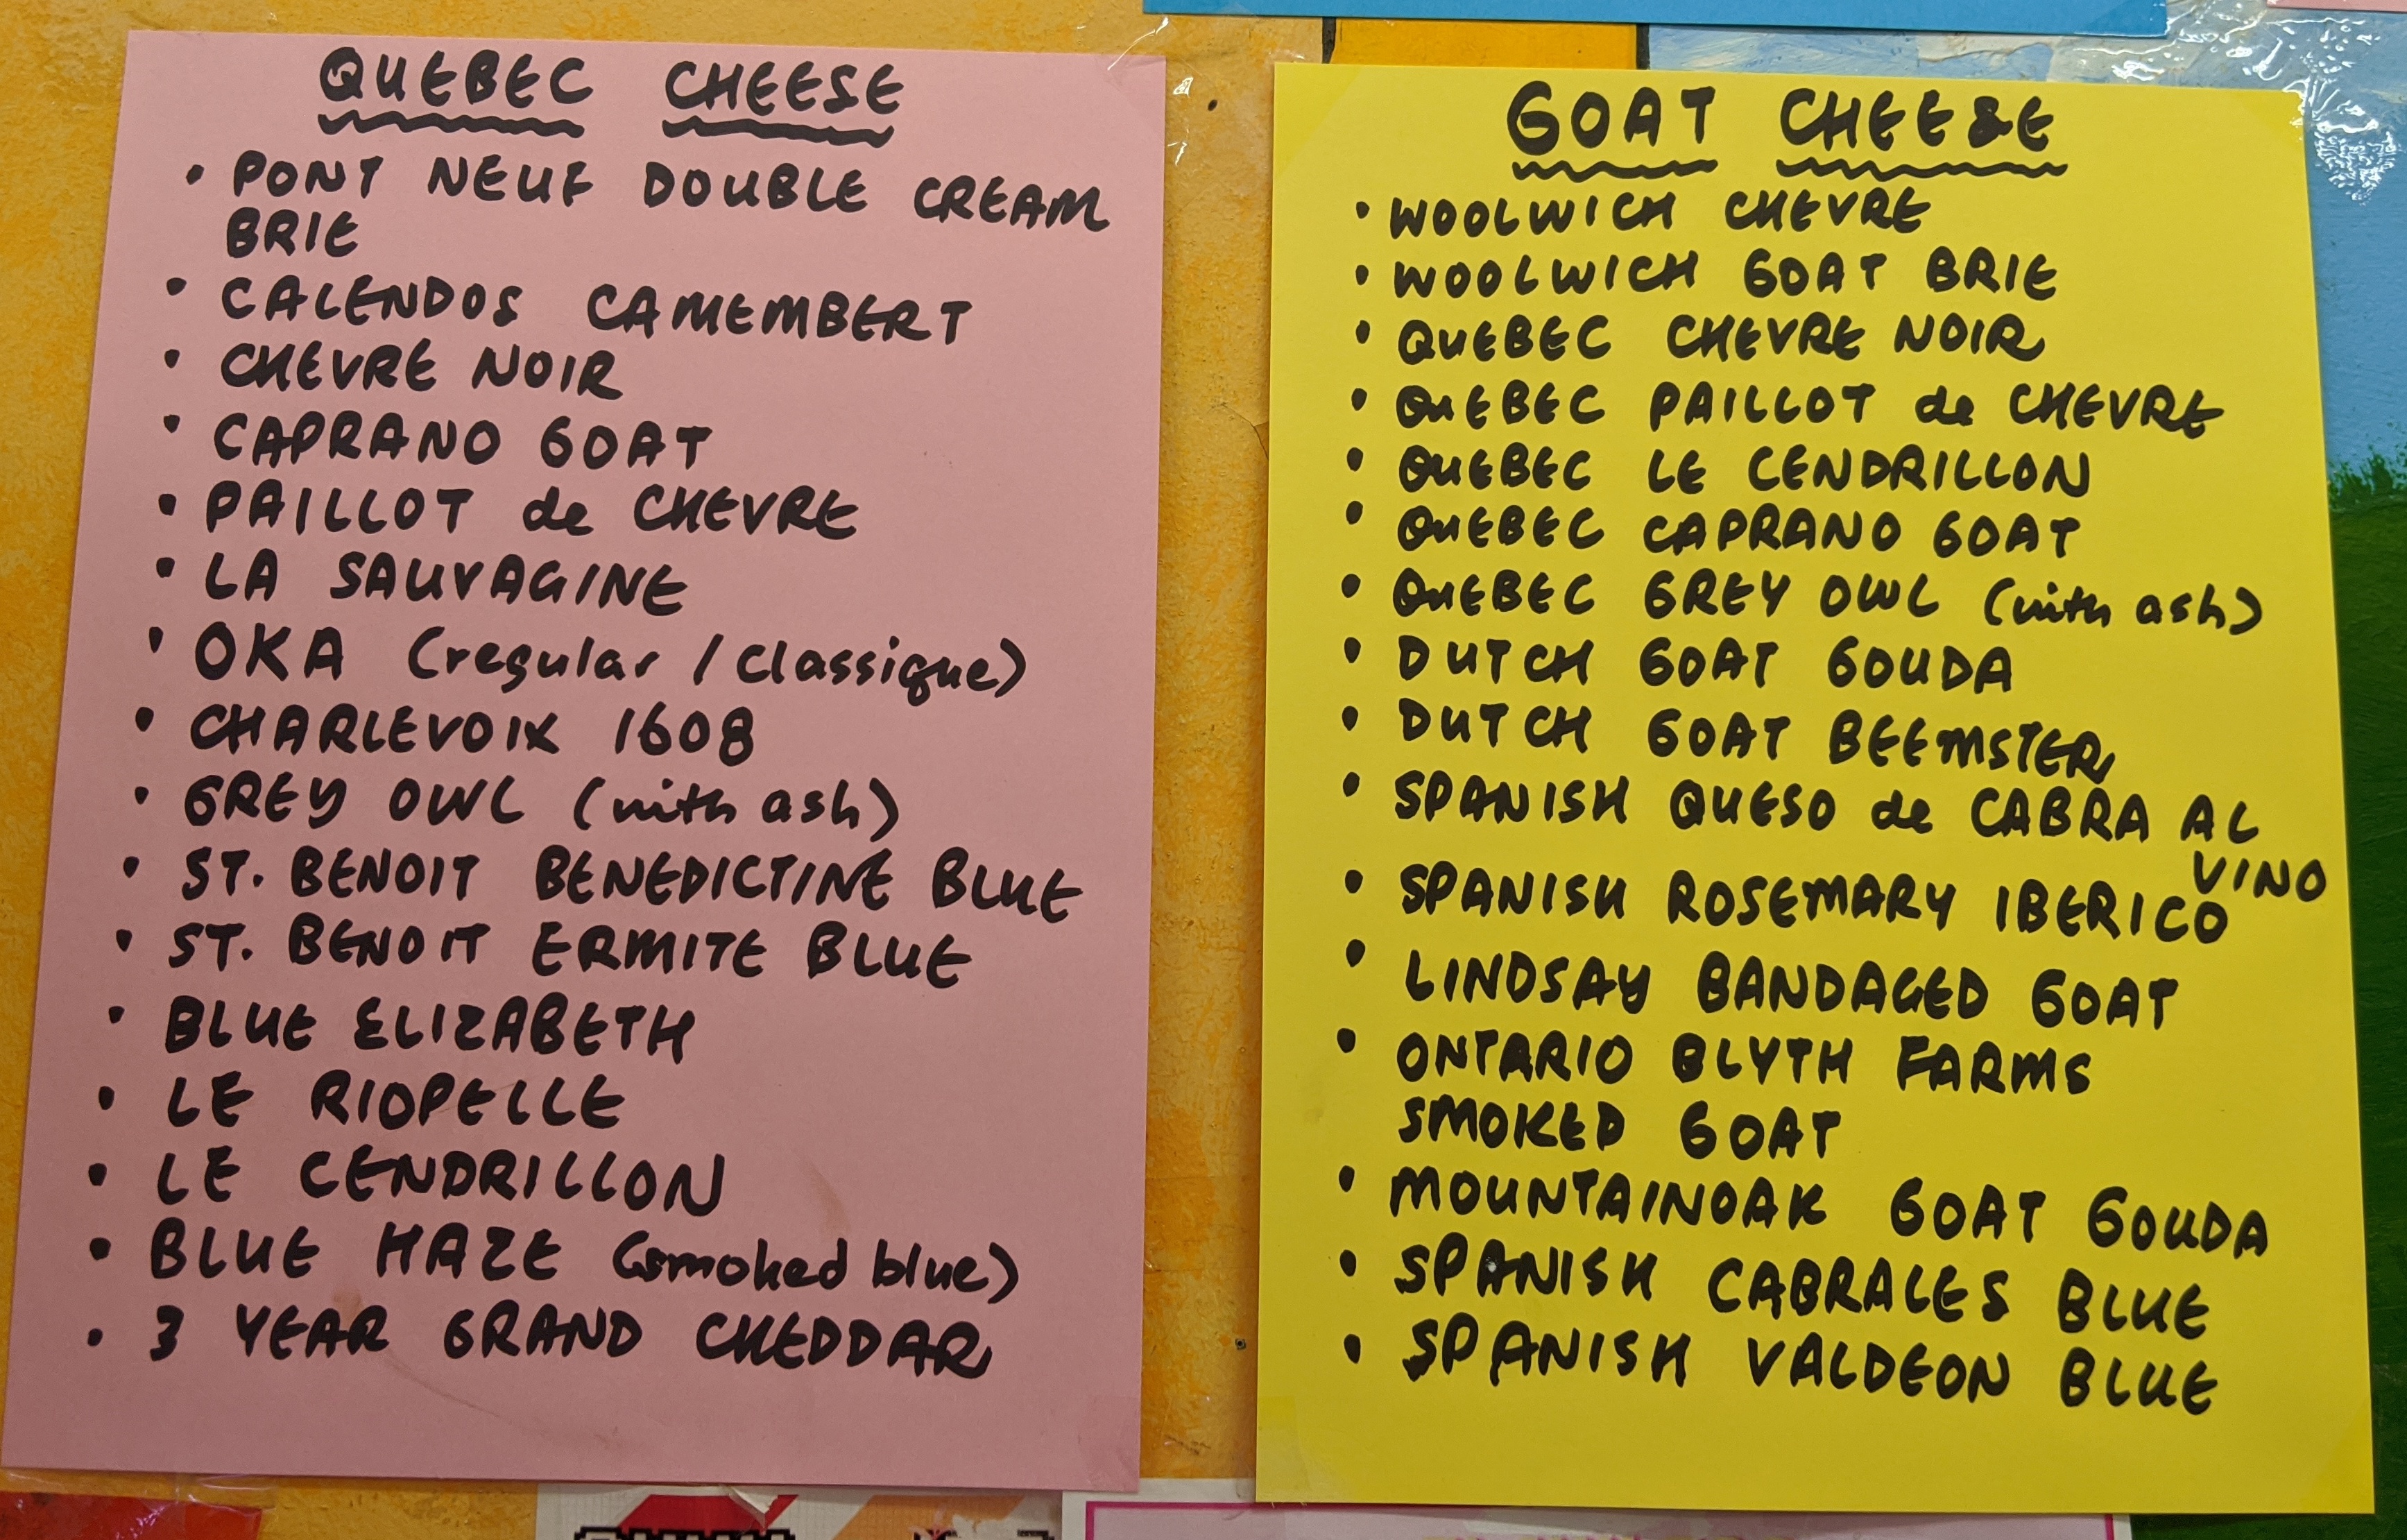 QUEBEC CHEESE
• PONT NEUF DOUBLE CREAM
BRIE
• CALENDOS CAMEMBERT
• CHEVRE NOIR
• CAPRANO GOAT
• PAILLOT de CHEVRE
• LA SAUVAGINE
• OKA (regular / classique)
• CHARLEVOIX 1608
• GREY OWL (with ash)
• ST. BENOIT BENEDICTINE BLUE
• ST. BENOIT ERMITE BLUE
• BLUE ELIZABETH
• LE RIOPELLE
• LE CENDRILLON
• BLUE HAZE (smoked blue)
• 3 YEAR GRAND CHEDDAR
GOAT CHEESE
• WOOLWICH CHEVRE
• WOOLWICH GOAT BRIE
• QUEBEC CHEVRE NOIR
• QUEBEC PAILLOT de CHEVRE
• QUEBEC LE CENDRILLON
• QUEBEC CAPRANO GOAT
• QUEBEC GREY OWL (with ash)
• DUTCH GOAT GOUDA
• DUTCH GOAT BEEMSTER
• SPANISH QUESO de CABRA AL
VINO
• SPANISH ROSEMARY IBERICO
• LINDSAY BANDAGED GOAT
• ONTARIO BLYTH FARMS
SMOKED GOAT
• MOUNTAINOAK GOAT GOUDA
• SPANISH CABRALES BLUE
• SPANISH VALDEON BLUE